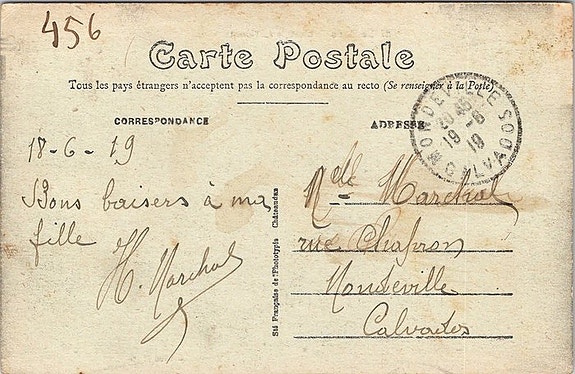 456
Carte Postale
Tous les pays étrangers n'acceptent pas la correspondance au recto (Se renseigner à la Poste)
CORRESPONDANCE
ADRESSE
MONDEVILLE CALVADOS
20 45
19 - 6
19
18 - 6 - 19
Bons baisers à ma
fille
H. Marchal
Sté Française de Phototypie Châteaudun
Mlle Marchal
rue Chapron
Mondeville
Calvados